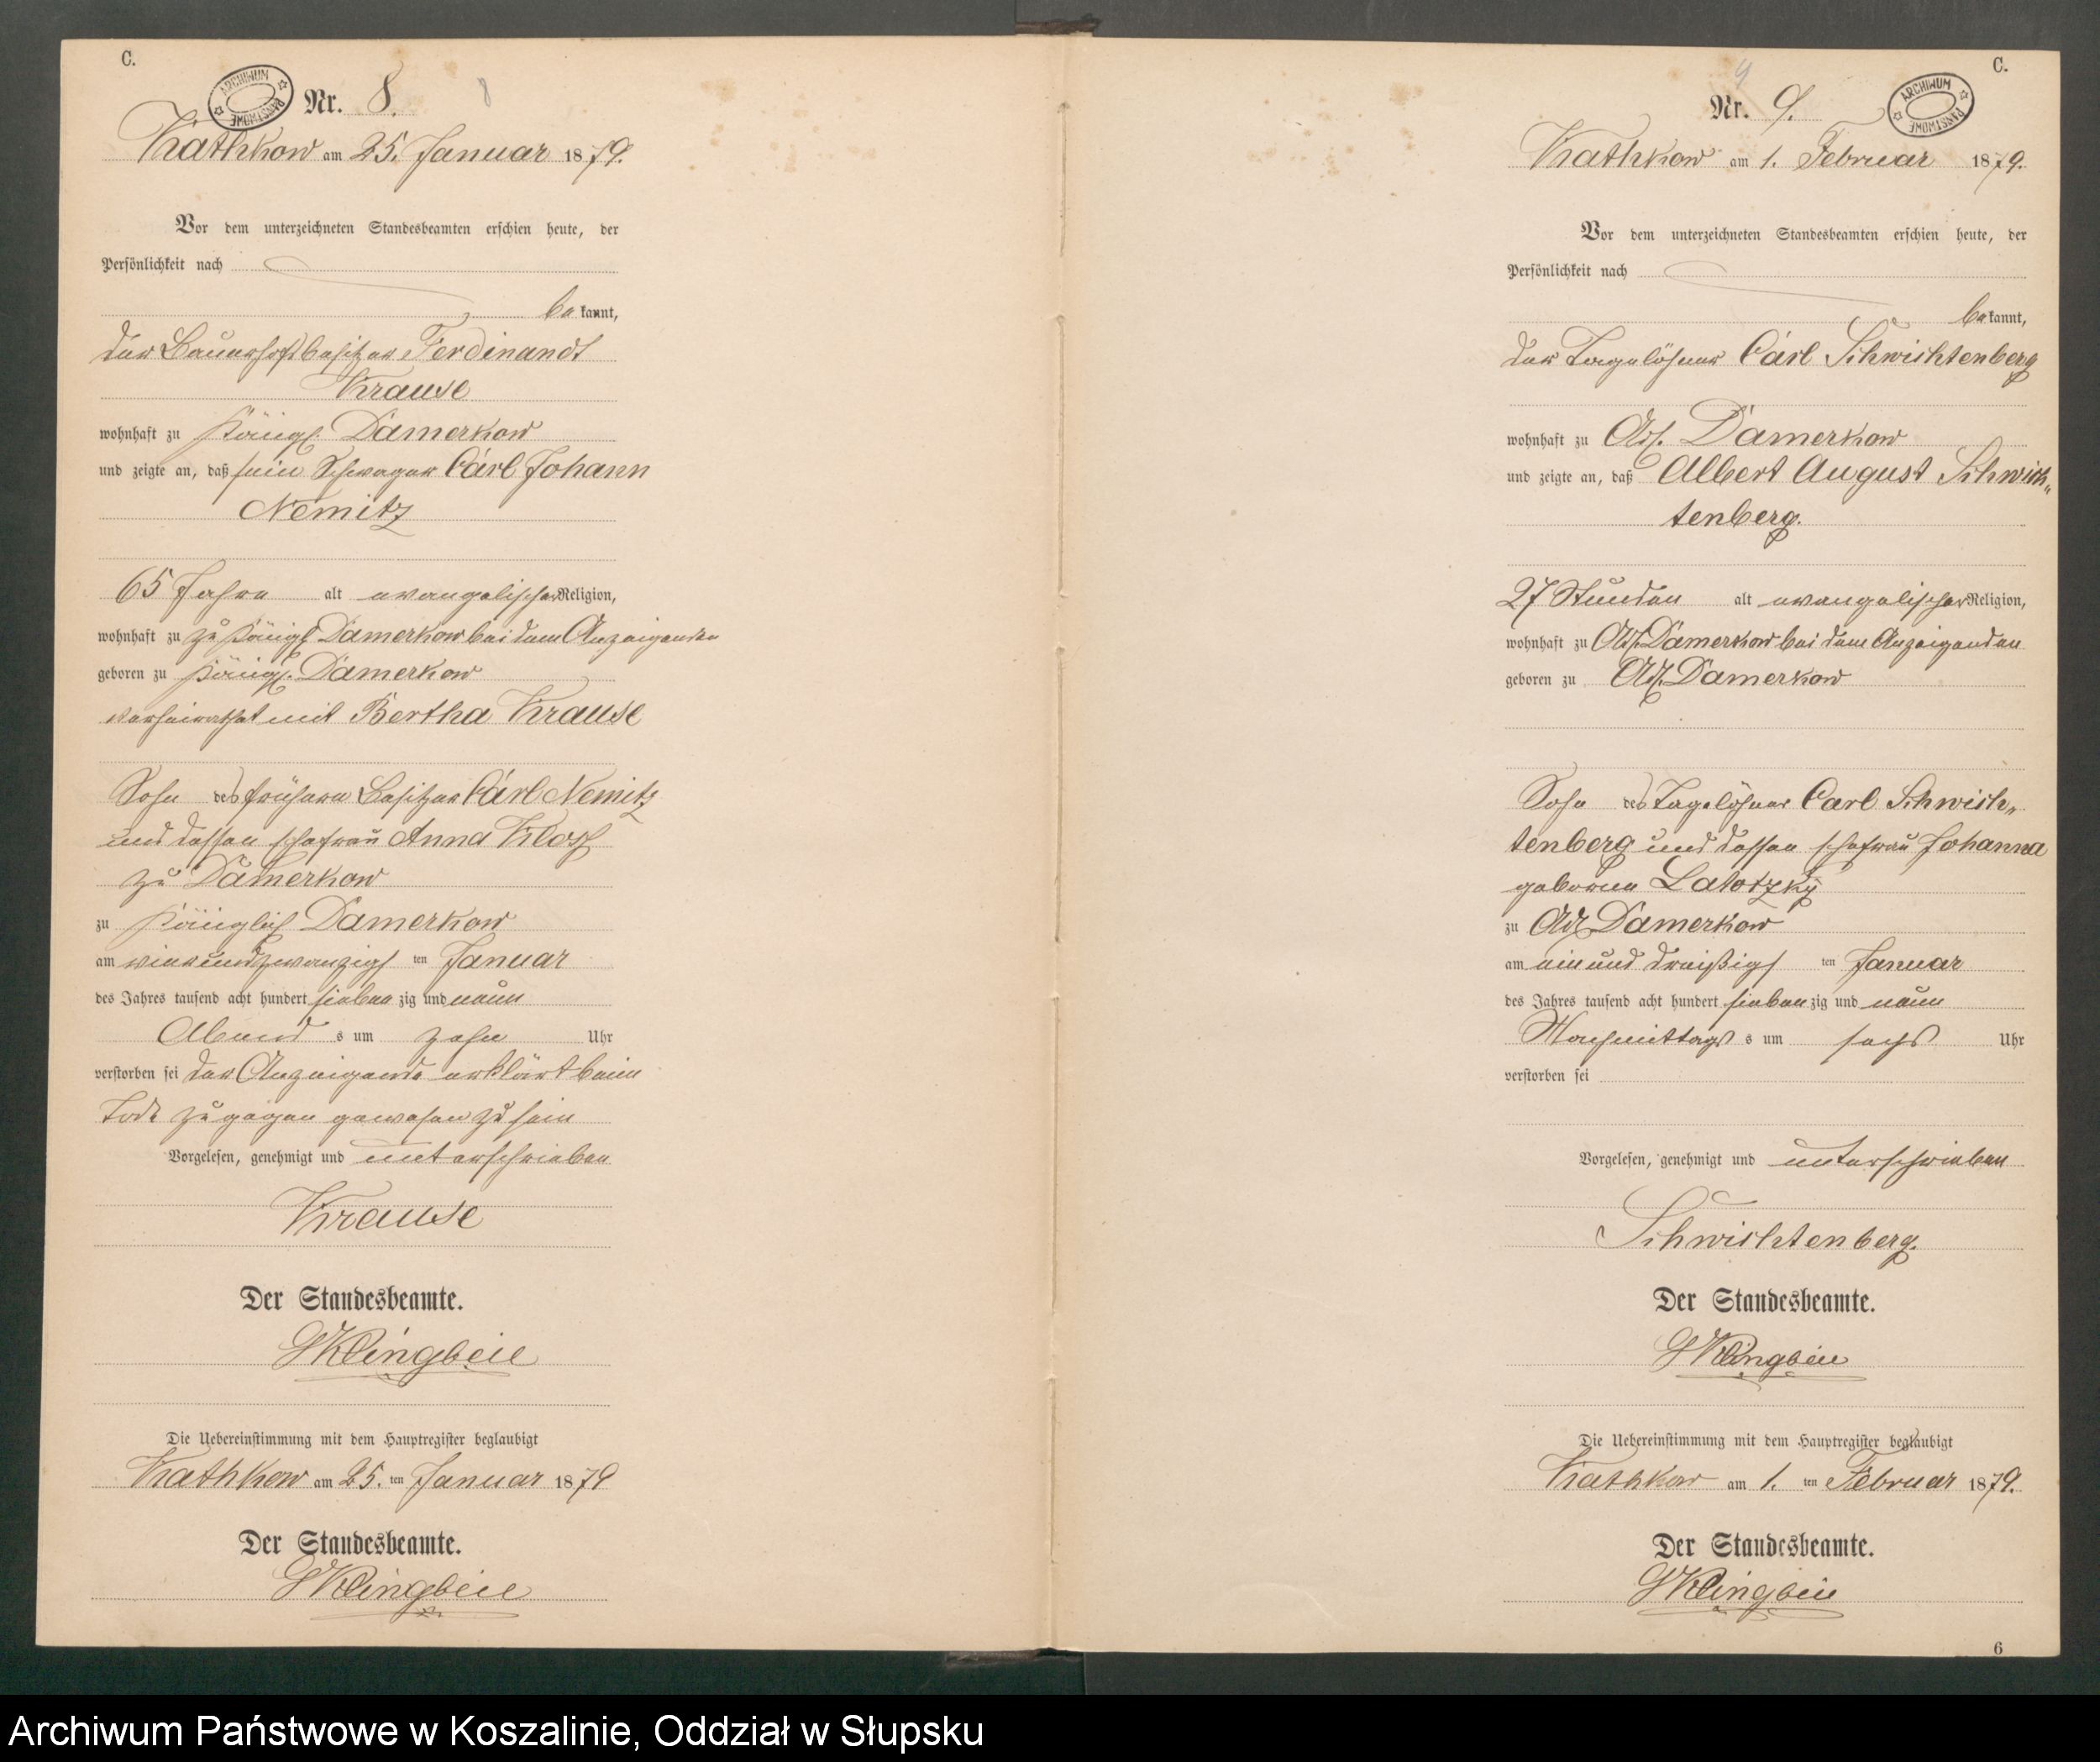 C.
ARCHIWUM PAŃSTWOWE
Nr. 8.
8
Kathkow am 25. Januar 1879.
Vor dem unterzeichneten Standesbeamten erschien heute, der
Persönlichkeit nach
bekannt,
der Bauerhofsbesitzer Ferdinandt
Krause
wohnhaft zu Königl. Damerkow
und zeigte an, daß sein Schwager Carl Johann
Nemitz
65 Jahre alt evangelischer Religion,
wohnhaft zu zu Königl Damerkow bei dem Anzeigenden
geboren zu Königl. Damerkow
verheirathet mit Bertha Krause
Sohn des frühern Besitzer Carl Nemitz
und dessen Ehefrau Anna
zu Damerkow
zu Königlich Damerkow
am vierundzwanzigsten Januar
des Jahres tausend acht hundert siebenzig und neun
Abends um zehn Uhr
verstorben sei der Anzeigende erklärt beim
Tode zugegen gewesen zu sein
Vorgelesen, genehmigt und unterschrieben
Krause
Der Standesbeamte.
Klingbeil
Die Uebereinstimmung mit dem Hauptregister beglaubigt
Kathkow am 25. ten Januar 1879
Der Standesbeamte.
Klingbeil
C.
9
Nr. 9.
ARCHIWUM PAŃSTWOWE
Kathkow am 1. Februar 1879.
Vor dem unterzeichneten Standesbeamten erschien heute, der
Persönlichkeit nach
bekannt,
der Tagelöhner Carl Schwichtenberg
wohnhaft zu Adl. Damerkow
und zeigte an, daß Albert August Schwich„
tenberg.
27 Stunden alt evangelischer Religion,
wohnhaft zu Adl. Damerkow bei dem Anzeigenden
geboren zu Adl. Damerkow
Sohn des Tagelöhner Carl Schwich„
tenberg und dessen Ehefrau Johanna
geborene Latotzky
zu Adl Damerkow
am ein und dreißigsten Januar
des Jahres tausend acht hundert siebenzig und neun
Nachmittags s um sechs Uhr
verstorben sei
Vorgelesen, genehmigt und unterschrieben
Schwichtenberg.
Der Standesbeamte.
Klingbeil
Die Uebereinstimmung mit dem Hauptregister beglaubigt
Kathkow am 1. ten Februar 1879.
Der Standesbeamte.
Klingbeil
6
Archiwum Państwowe w Koszalinie, Oddział w Słupsku